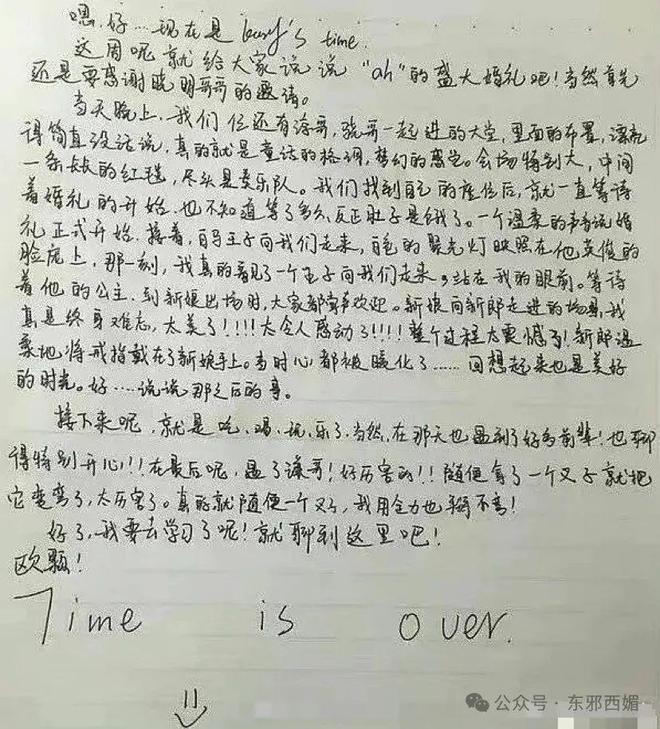 嗯,好…现在是busy's time.
这周呢就给大家说说“ah”的盛大婚礼吧!当然首先
还是要感谢晓明哥哥的邀请。
当天晚上,我们位还有海哥,骁哥一起进的大堂,里面的布置,漂亮
得简直没话说,真的就是童话的格调,梦幻的感觉。会场特别大,中间
一条妹的红毯,尽头是交乐队。我们找到自己的座位后,就一直等待
着婚礼的开始,也不知道等了多久,反正肚子是饿了。一个温柔的声音说婚
礼正式开始,接着,白马王子向我们走来,白色的聚光灯映照在他英俊的
脸庞上,那一刻,我真的看见了一个王子向我们走来,站在我的眼前。等待
着他的公主。到新娘出场时,大家都掌声欢迎。新娘向新郎走进的场景,我
真是终身难忘,太美了!!!!太令人感动了!!!!整个过程太震憾了!新郎温
柔地将戒指戴在了新娘手上。当时心都被暖化了……回想起来也是美好
的时光。好……说说那之后的事。
接下来呢,就是吃、喝、玩、乐了,当然,在那天也遇到了好多前辈!也聊
得特别开心!!在最后呢,遇了谦哥!好厉害的!!随便拿了一个叉子就把
它变弯了,太厉害了。真的就随便一个叉子,我用全力也掰不弯!
好了,我要去学习了呢!就聊到这里吧!
欧飘!
Time is over.
公众号·东邪西媚